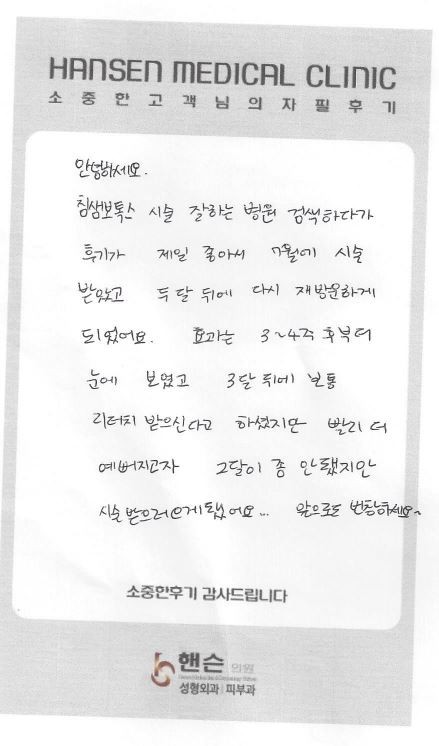 HANSEN MEDICAL CLINIC
소중한고객님의자필후기
안녕하세요.
침샘보톡스 시술 잘하는 병원 검색하다가
후기가 제일 좋아서 7월에 시술
받았고 두달 뒤에 다시 재방문하게
되었어요. 효과는 3~4주 후부터
눈에 보였고 3달 뒤에 보통
리터치 받으신다고 하셨지만 빨리 더
예뻐지고자 2달이 좀 안됐지만
시술 받으러 오게됐어요... 앞으로도 번창하세요~
소중한후기 감사드립니다
핸슨 의원
성형외과 피부과